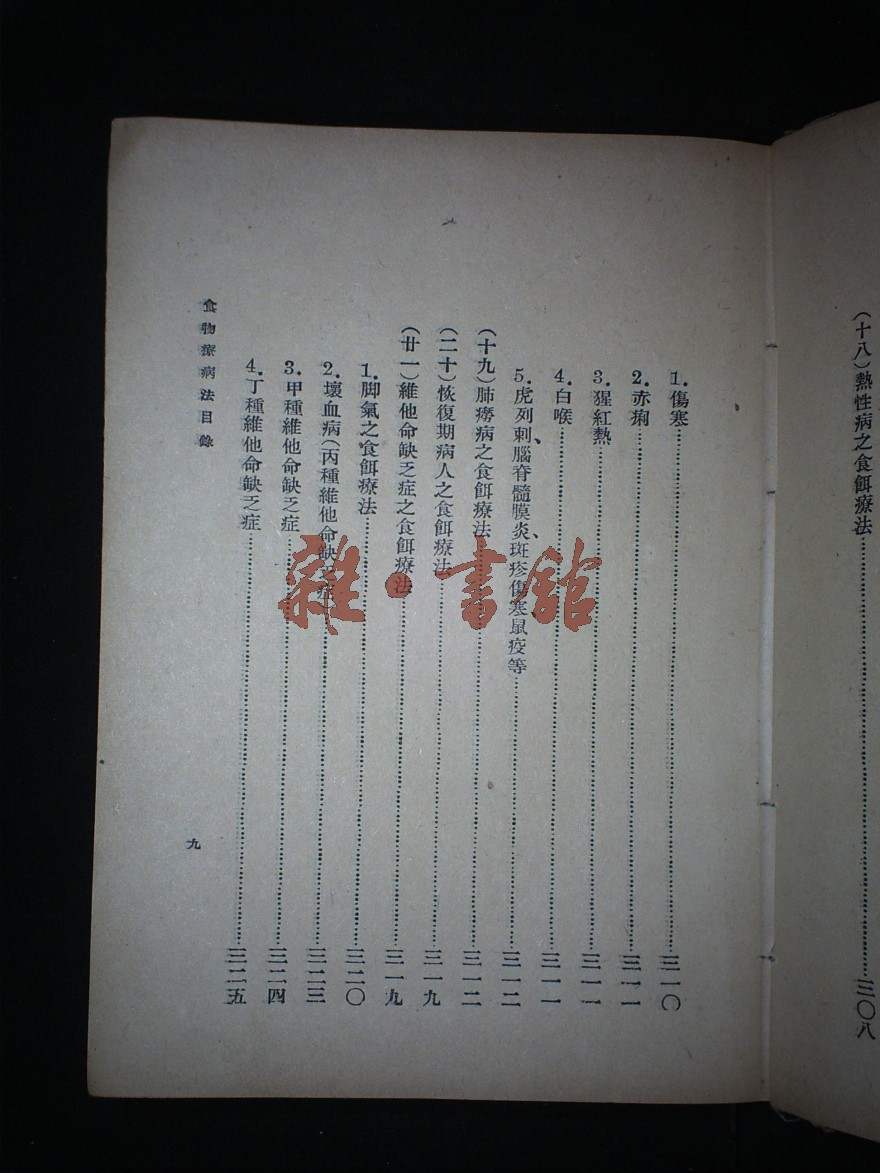 (十八)熱性病之食餌療法……三〇八
1.傷寒……三一〇
2.赤痢……三一一
3.猩紅熱……三一一
4.白喉……三一一
5.虎列刺、腦脊髓膜炎、斑疹傷寒鼠疫等……三一二
(十九)肺癆病之食餌療法……三一二
(二十)恢復期病人之食餌療法……三一九
(廿一)維他命缺乏症之食餌療法……三一九
1.脚氣之食餌療法……三二〇
2.壞血病(丙種維他命缺乏症)……三二三
3.甲種維他命缺乏症……三二四
4.丁種維他命缺乏症……三二五
食物療病法目錄
九
雜·書館